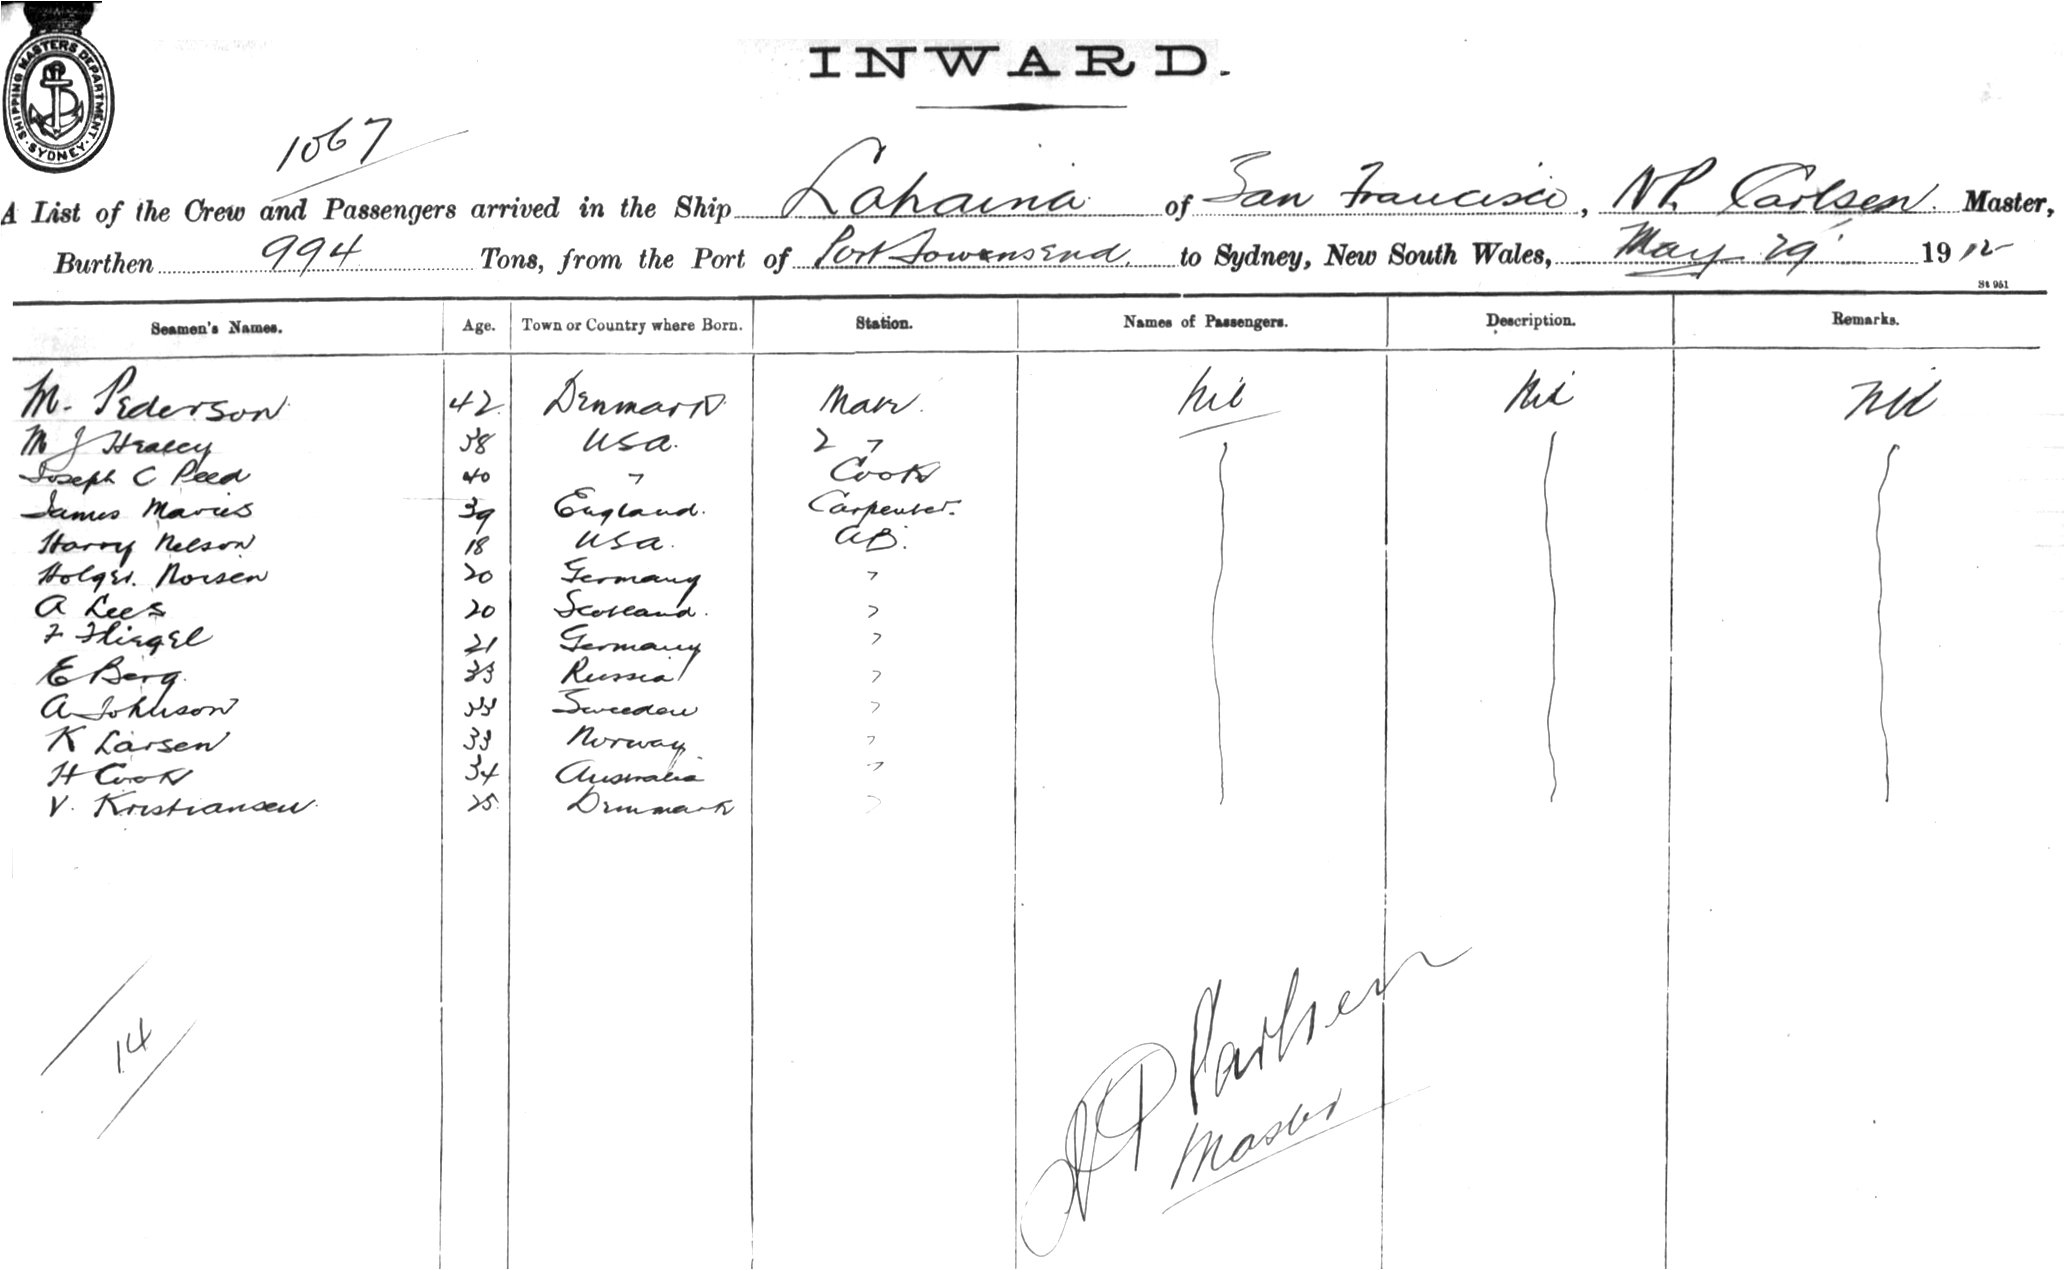 SHIPPING MASTERS DEPARTMENT. SYDNEY.
INWARD.
1067
A List of the Crew and Passengers arrived in the Ship Lahaina of San Francisco, NP. Carlsen. Master,
Burthen 994 Tons, from the Port of Port Townsend. to Sydney, New South Wales, May 29 1912
St 951
Seamen's Names. Age. Town or Country where Born. Station. Names of Passengers. Description. Remarks.
M. Pederson 42. Denmark Mate. Nil Nil Nil
M J Healey 38 USA. 2 "
Joseph C Reed 40 " Cook
James 39 England. Carpenter.
Harry Nelson 18 USA. AB.
Holger. 20 Germany "
A Lees 20 Scotland. "
F Fliegel 21 Germany "
E Berg. 33 Russia "
A Johnson 33 Sweeden "
K Larsen 33 Norway "
H Cook 34 Australia "
V. Kristiansen. 25. Denmark "
14
NP Carlsen
Master